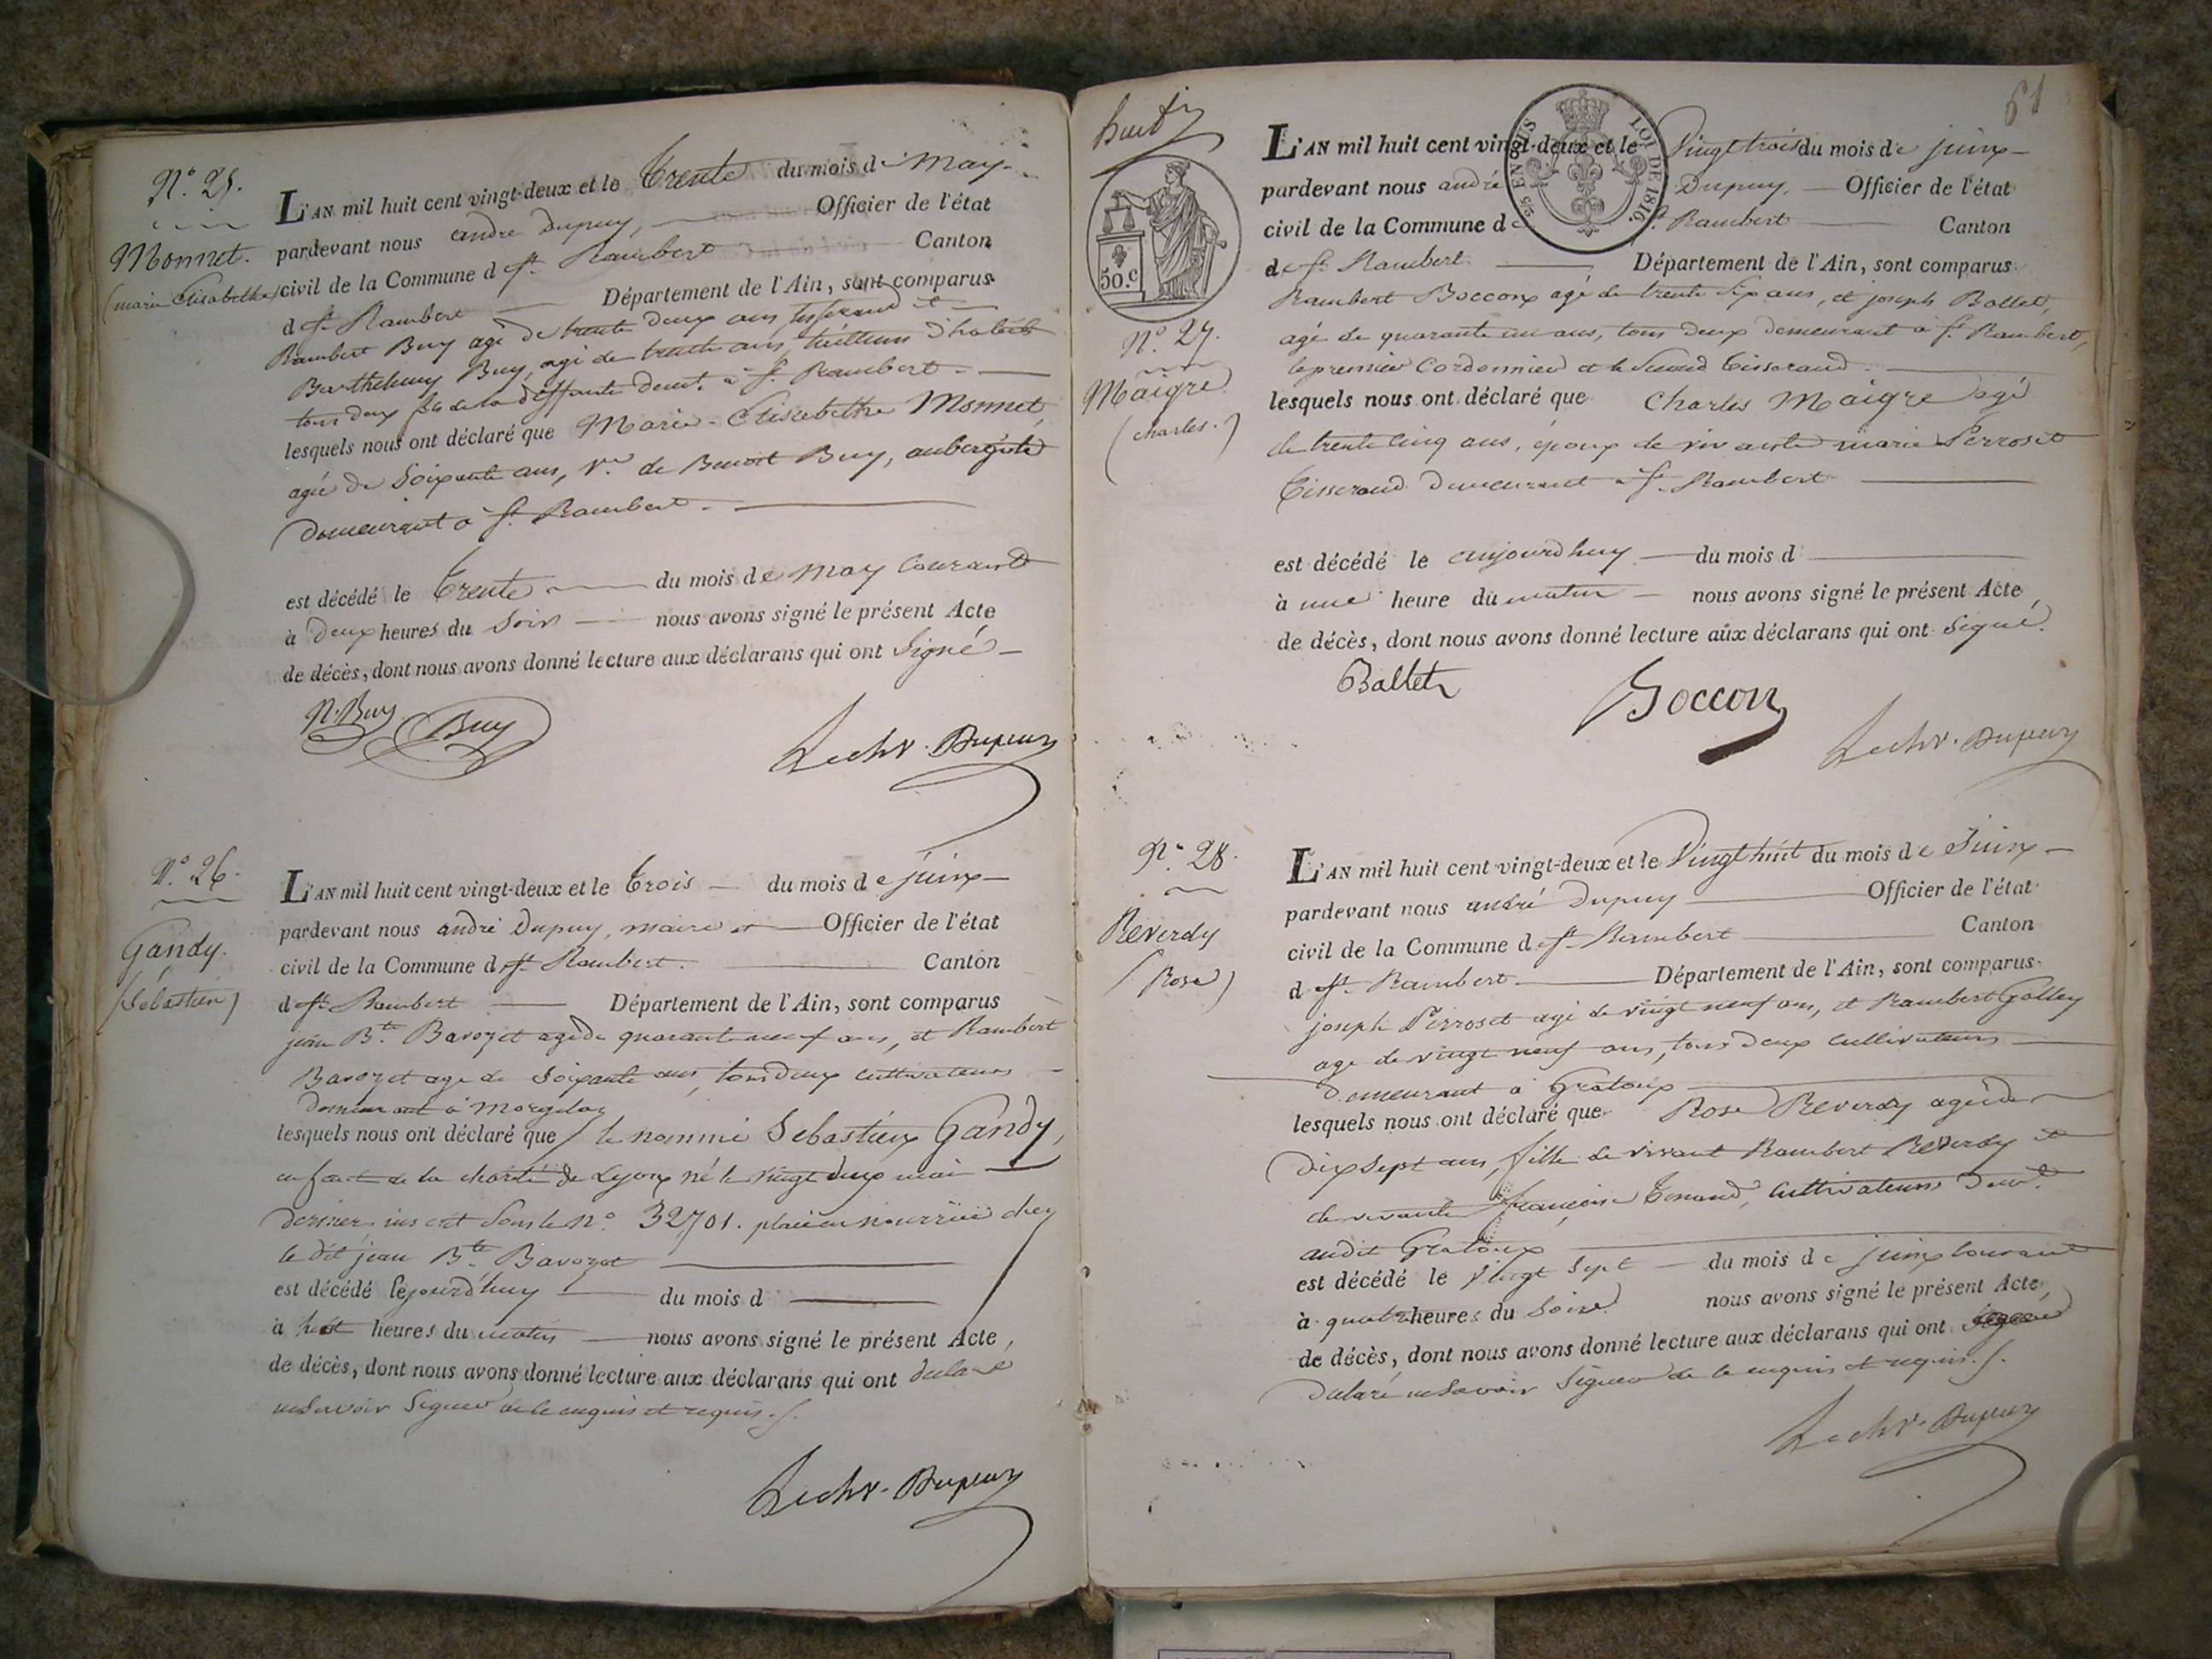 N.° 25.
Monnet.
(marie Elisabethe)
L'AN mil huit cent vingt-deux et le Trente du mois de May
pardevant nous andré Dupuy, Officier de l'état
civil de la Commune de St. Rambert Canton
de St. Rambert Département de l'Ain, sont comparus
Rambert Buy agé de trente deux ans tisserand et
Barthelemy Buy, agé de trente ans, tailleur d'habits
tous deux fils de la deffunte demt. à St. Rambert
lesquels nous ont déclaré que Marie-Elisabethe Monnet,
agée de Soixante ans, Ve. de Benoit Buy, aubergiste
demeurant à St. Rambert
est décédé le Trente du mois de May Courant
à Deux heures du Soir nous avons signé le présent Acte
de décès, dont nous avons donné lecture aux déclarans qui ont Signé
R. Buy Buy
Lechr. Dupuy
N.° 26.
Gandy.
(Sébastien)
L'AN mil huit cent vingt-deux et le trois du mois de juin
pardevant nous andré Dupuy, maire et Officier de l'état
civil de la Commune de St. Rambert. Canton
de St. Rambert Département de l'Ain, sont comparus
jean Bte. Bavozet agé de quarante neuf ans, et Rambert
Bavozet age de Soixante ans, tous deux cultivateurs
demeurant à Morgelas
lesquels nous ont déclaré que le nommé Sebastien Gandy,
enfant de la charité de Lyon né le vingt deux mai
dernier, inscrit sous le n°. 32,701. placé en nourrice chez
le dit jean Bte. Bavozet
est décédé lejourd'huy du mois d
à huit heures du matin nous avons signé le présent Acte,
de décès, dont nous avons donné lecture aux déclarans qui ont declaré
ne Savoir Signer de ce enquis et requis.
Lechr. Dupuy
61
huit
25 EN SUS LOI DE 1816.
50.c
N.° 27.
Maigre
(charles.)
L'AN mil huit cent vingt-deux et le Vingt trois du mois de juin
pardevant nous andré Dupuy, Officier de l'état
civil de la Commune de St. Rambert Canton
de St. Rambert Département de l'Ain, sont comparus
Rambert Boccon agé de trente six ans, et joseph Ballet,
agé de quarante un ans, tous deux demeurant à St. Rambert,
le premier Cordonnier et le Second tisserand
lesquels nous ont déclaré que Charles Maigre agé
de trente cinq ans, époux de vivante marie Perroset
Tisserand demeurant à St. Rambert
est décédé le aujourdhuy du mois d
à une heure du matin nous avons signé le présent Acte
de décès, dont nous avons donné lecture aux déclarans qui ont Signé.
Ballet
Boccon
Lechr. Dupuy
N.° 28.
Reverdy
(Rose)
L'AN mil huit cent vingt-deux et le Vingt huit du mois de Juin
pardevant nous andré Dupuy Officier de l'état
civil de la Commune de St. Rambert Canton
de St. Rambert Département de l'Ain, sont comparus
joseph Perroset agé de vingt neuf ans, et Rambert Galley
age de vingt neuf ans, tous deux cultivateurs
demeurant à Gratoux
lesquels nous ont déclaré que Rose Reverdy agée de
dix Sept ans, fille de vivant Rambert Reverdy et
de vivante françoise Tenand, cultivateurs demt.
audit Gratoux
est décédé le vingt Sept du mois de juin courant
à quatre heures du Soir nous avons signé le présent Acte,
de décès, dont nous avons donné lecture aux déclarans qui ont
declaré ne Savoir Signer de ce enquis et requis.
Lechr. Dupuy